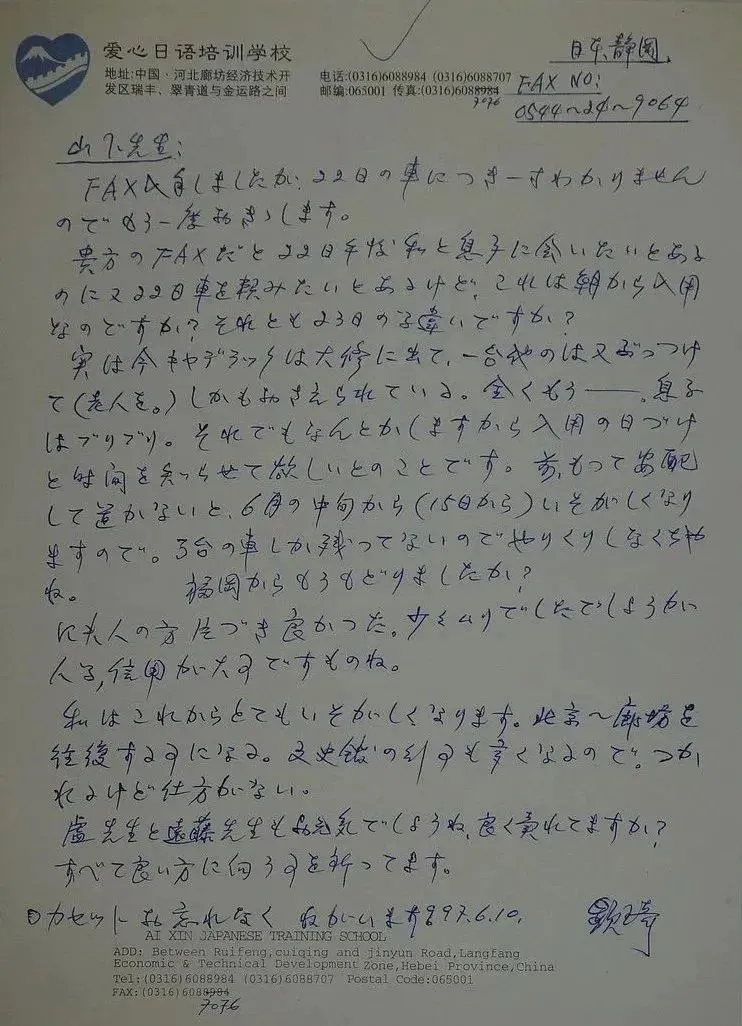 爱心日语培训学校
地址:中国·河北廊坊经济技术开
发区瑞丰、翠青道与金运路之间
电话:(0316)6088984 (0316)6088707
邮编:065001 传真:(0316)6088984
7076
日本、静岡
FAX NO:
0544~24~9064
山下先生:
FAX入手しましたが、22日の車につき一寸わかりません
のでもう一度おききします。
貴方のFAXだと22日午後私と息子に会いたいとある
のに又22日車を頼みたいとあるけど、これは朝から入用
なのですか?それとも23日の間違いですか?
実は今キャデラックは大修に出て、一台他のは又ぶっつけ
て(老人を。)しかもおさえられている。全くもう——。息子
はブリブリ。それでもなんとかしますから入用の日づけ
と時间を知らせて欲しいとのことです。前もって安配
して置かないと、6月の中旬から(15日から)いそがしくなり
ますので。3台の車しか残ってないのでやりくりしなくちゃ
ね。 福岡からもうもどりましたか?
夫人の方片づき良かった。少々ムリでしたでしょうが
人は信用が大事ですものね。
私はこれからとてもいそがしくなります。北京~廊坊を
往復する事になる。文史館の行事も多くなるので。つか
れるけど仕方がない。
盧先生と遠藤先生もお元気でしょうね、良く売れてますか?
すべて良い方に向う事を祈ってます。
カセットお忘れなく ねがいます 997.6.10. 顕琦
AI XIN JAPANESE TRAINING SCHOOL
ADD: Between Ruifeng,cuiqing and jinyun Road,Langfang
Economic & Technical Development Zone,Hebei Province,China
Tel:(0316)6088984 (0316)6088707 Postal Code:065001
FAX:(0316)6088984
7076